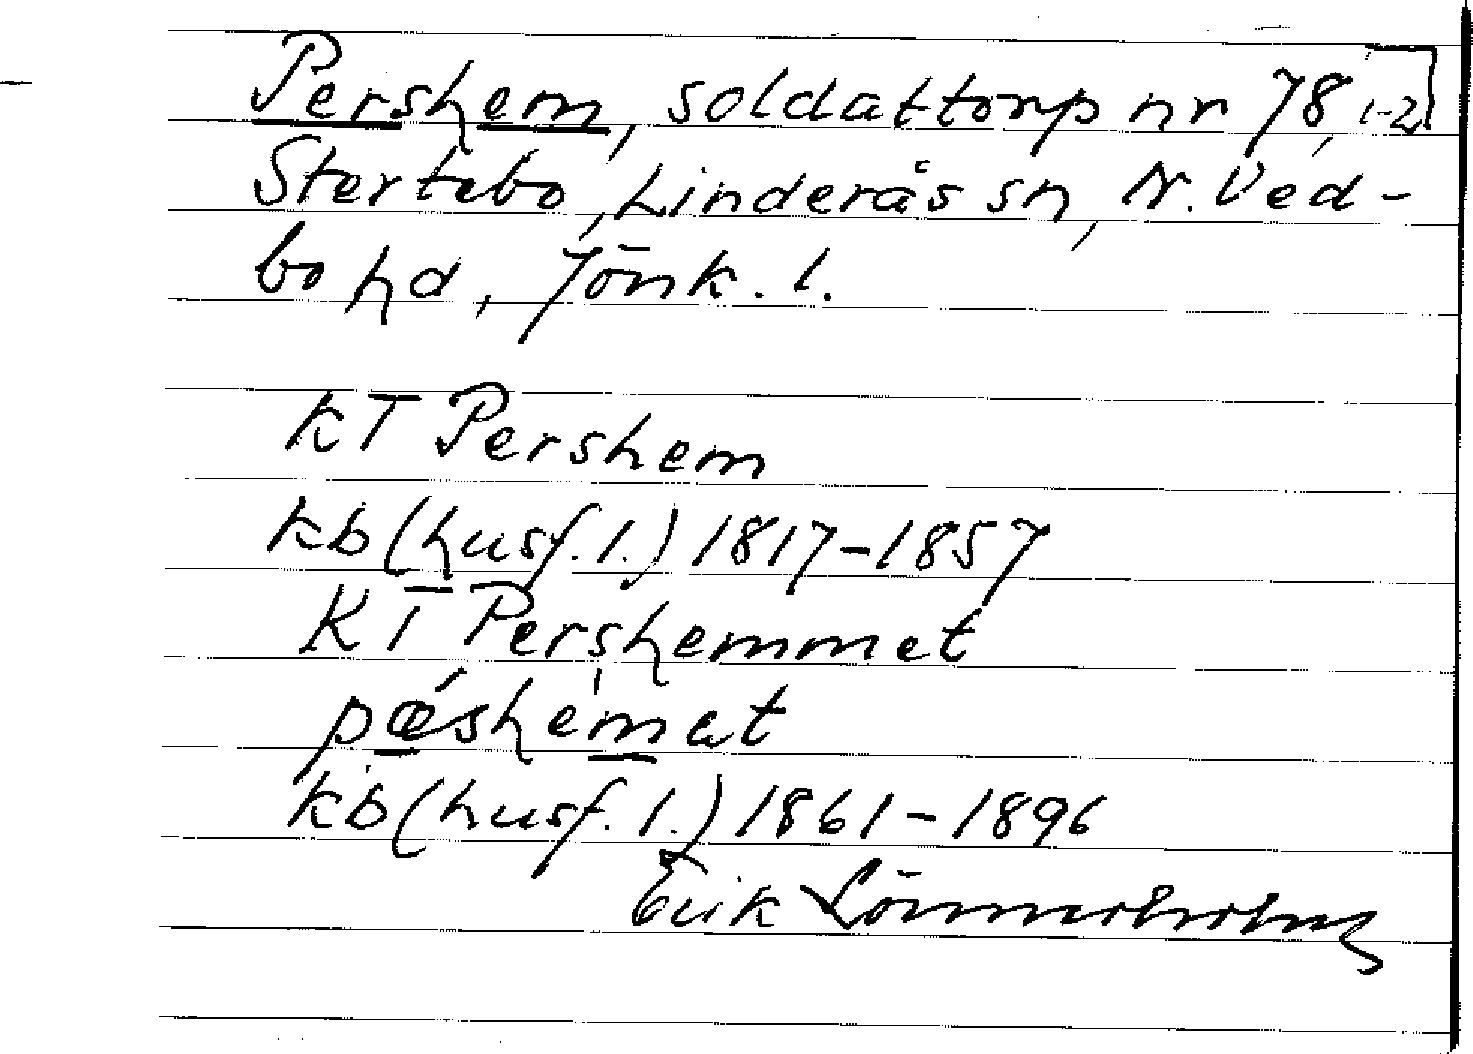 Pershem, soldattorp nr 78, 1-2]
Stertebo, Linderås sn, N. Ved-
bo hd, Jönk. l.
KT Pershem
kb (husf. l.) 1817-1857
KT Pershemmet
pǽshemat
kb (husf. l.) 1861-1896
Erik Lönnerholm